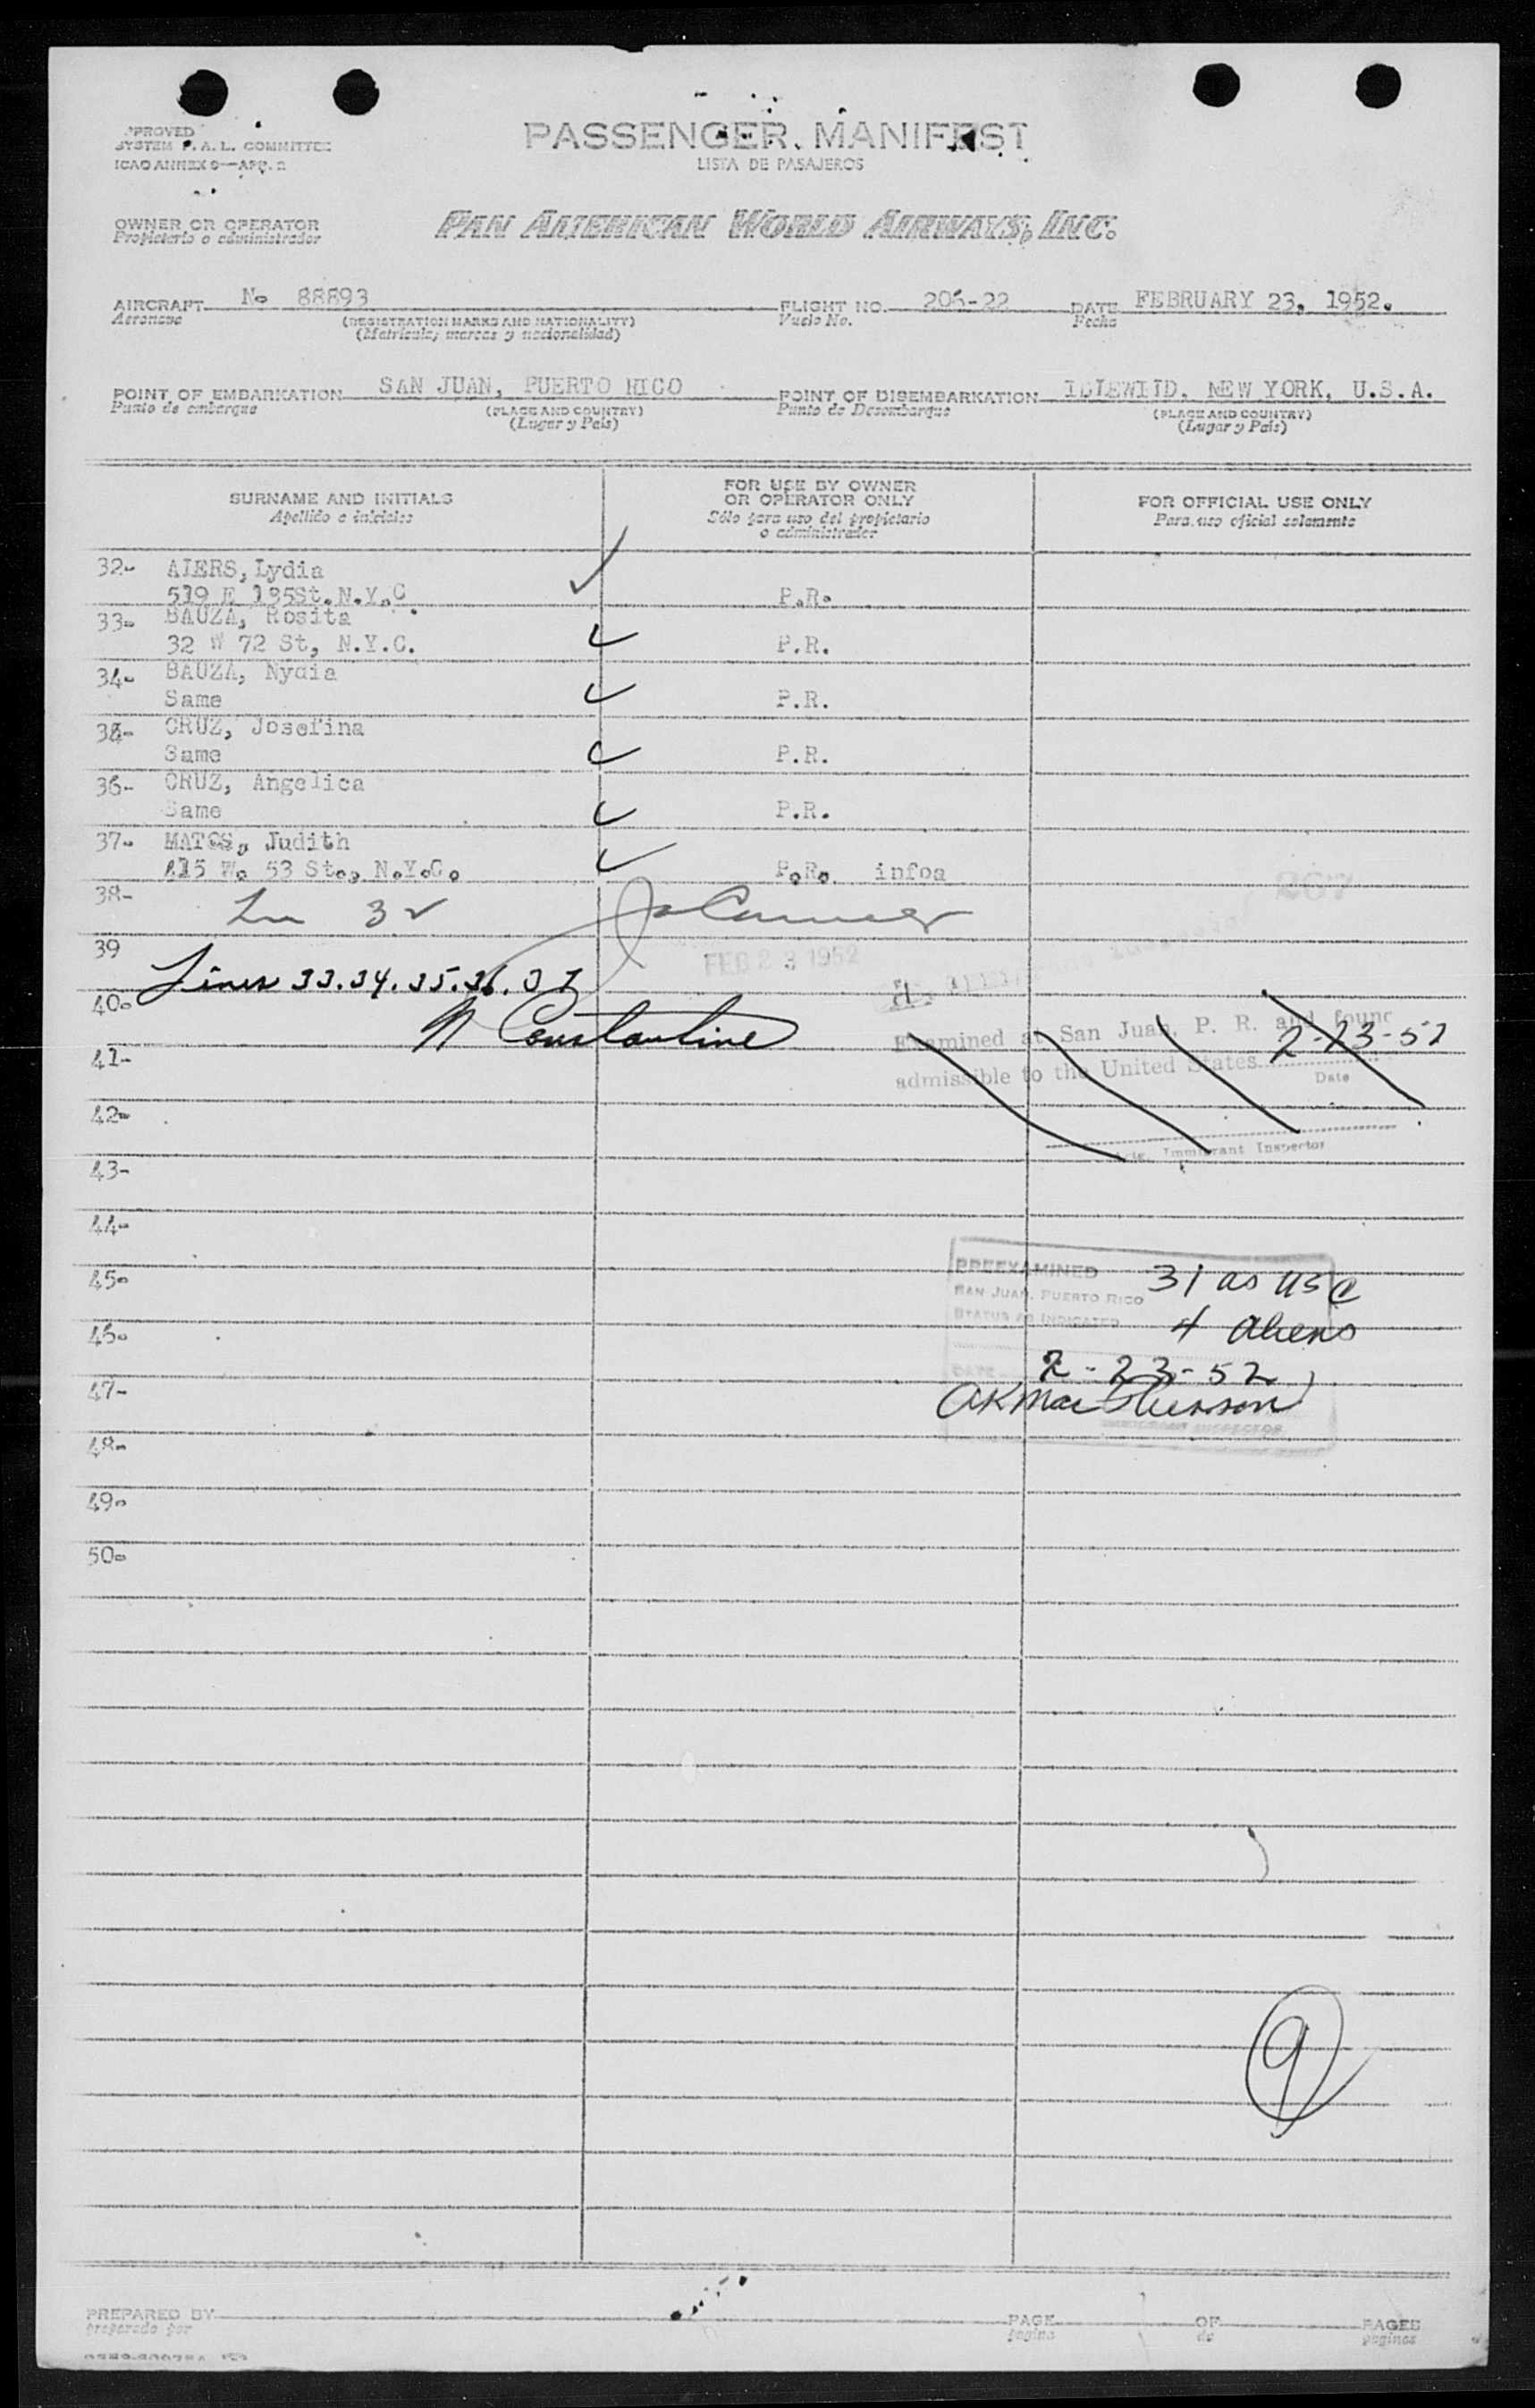 PASSENGER MANIFEST
LISTA DE PASAJEROS
APPROVED
SYSTEM F.A.L. COMMITTEE
ICAO ANNEX 9—APP. 2
OWNER OR OPERATOR
Propietario o administrador
PAN AMERICAN WORLD AIRWAYS, INC.
AIRCRAFT No 88893 FLIGHT NO. 206-22 DATE FEBRUARY 23, 1952.
Aeronave (REGISTRATION MARKS AND NATIONALITY) Vuelo No. Fecha
(Matricula, marcas y nacionalidad)
POINT OF EMBARKATION SAN JUAN, PUERTO RICO POINT OF DISEMBARKATION IDLEWILD, NEW YORK, U.S.A.
Punto de embarque (PLACE AND COUNTRY) Punto de Desembarque (PLACE AND COUNTRY)
(Lugar y País) (Lugar y País)
SURNAME AND INITIALS FOR USE BY OWNER OR OPERATOR ONLY FOR OFFICIAL USE ONLY
Apellido e iniciales Sólo para uso del propietario o administrador Para uso oficial solamente
32- Lydia
519 E St. N.Y.C P.R.
33- BAUZA, Rosita
32 W 72 St, N.Y.C. P.R.
34- BAUZA, Nydia
Same P.R.
35- CRUZ, Josefina
Same P.R.
36- CRUZ, Angelica
Same P.R.
37- MATOS, Judith
415 W. 53 St., N.Y.C. P.R. infoa
38- 32
267
39
FEB 23 1952
Lines 33.34.35.36.37
40-
N Constantine
Examined at San Juan, P. R. and found
2-23-52
41-
admissible to the United States
Date
42-
Immigrant Inspector
43-
44-
45-
PREEXAMINED 31 as USC
SAN JUAN, PUERTO RICO
STATUS AS INDICATED 4 aliens
46-
DATE 2-23-52
47-
IMMIGRANT INSPECTOR
48-
49-
50-
9
PREPARED BY PAGE OF PAGES
preparado por pagina de paginas